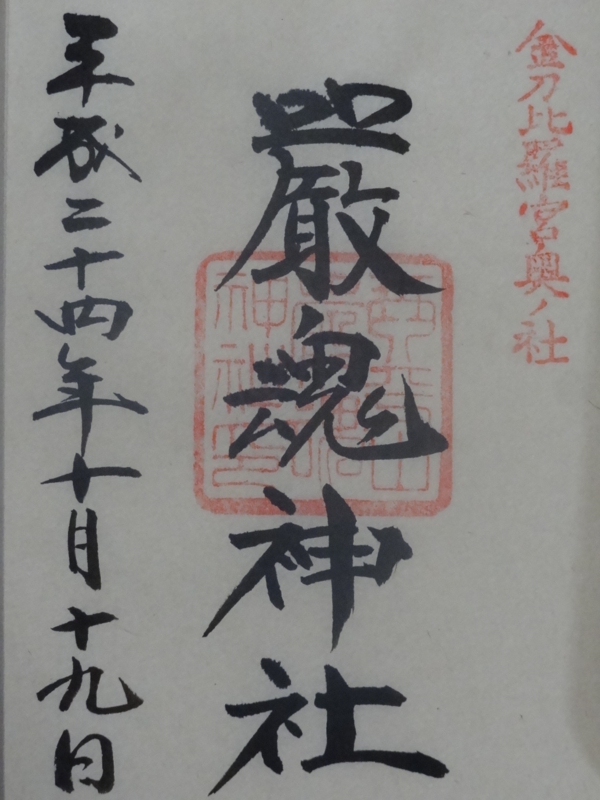 金刀比羅宮奥ノ社
嚴魂神社
平成二十四年十月十九日